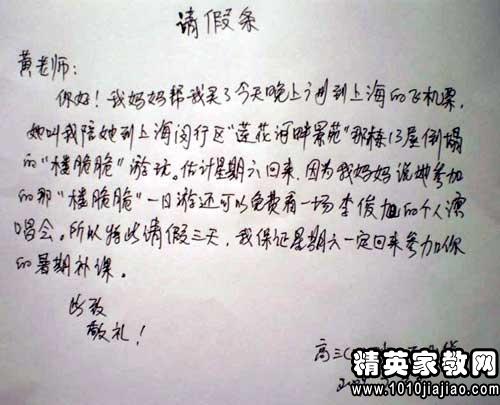 请假条
黄老师:
你好!我妈妈帮我买了今天晚上飞到上海的飞机票,
她叫我陪她到上海闵行区“莲花河畔景苑”那栋13层倒塌
的“楼脆脆”游玩。估计星期六回来,因为我妈妈说她参加
的那“楼脆脆”一日游还可以免费看一场李俊旭的个人演
唱会。所以特此请假三天,我保证星期六一定回来参加你
的暑期补课。
此致
敬礼!
高三(
精英家教网
www.1010jiajiao.com